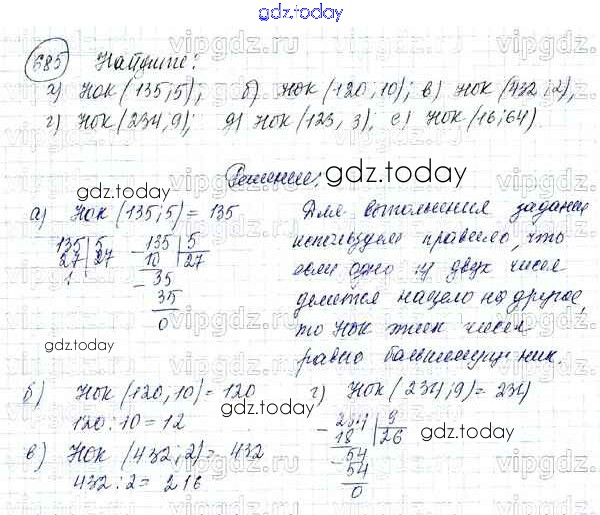 gdz.today
685 Найдите:
а) НОК (135; 5); б) НОК (120, 10); в) НОК (432; 2);
г) НОК (234, 9); д) НОК (123, 3); е) НОК (16; 64).
Решение:
gdz.today
gdz.today
а) НОК (135; 5) = 135
135 5
27 27
1
- 135 5
10 27
- 35
35
0
Для выполнения задания
используем правило, что
если одно из двух чисел
делится нацело на другое,
то НОК этих чисел
равно большему из них.
gdz.today
б) НОК (120, 10) = 120
120 : 10 = 12
в) НОК (432; 2) = 432
432 : 2 = 216
г) НОК (234; 9) = 234
- 234 9
18 26
- 54
54
0
gdz.today
gdz.today